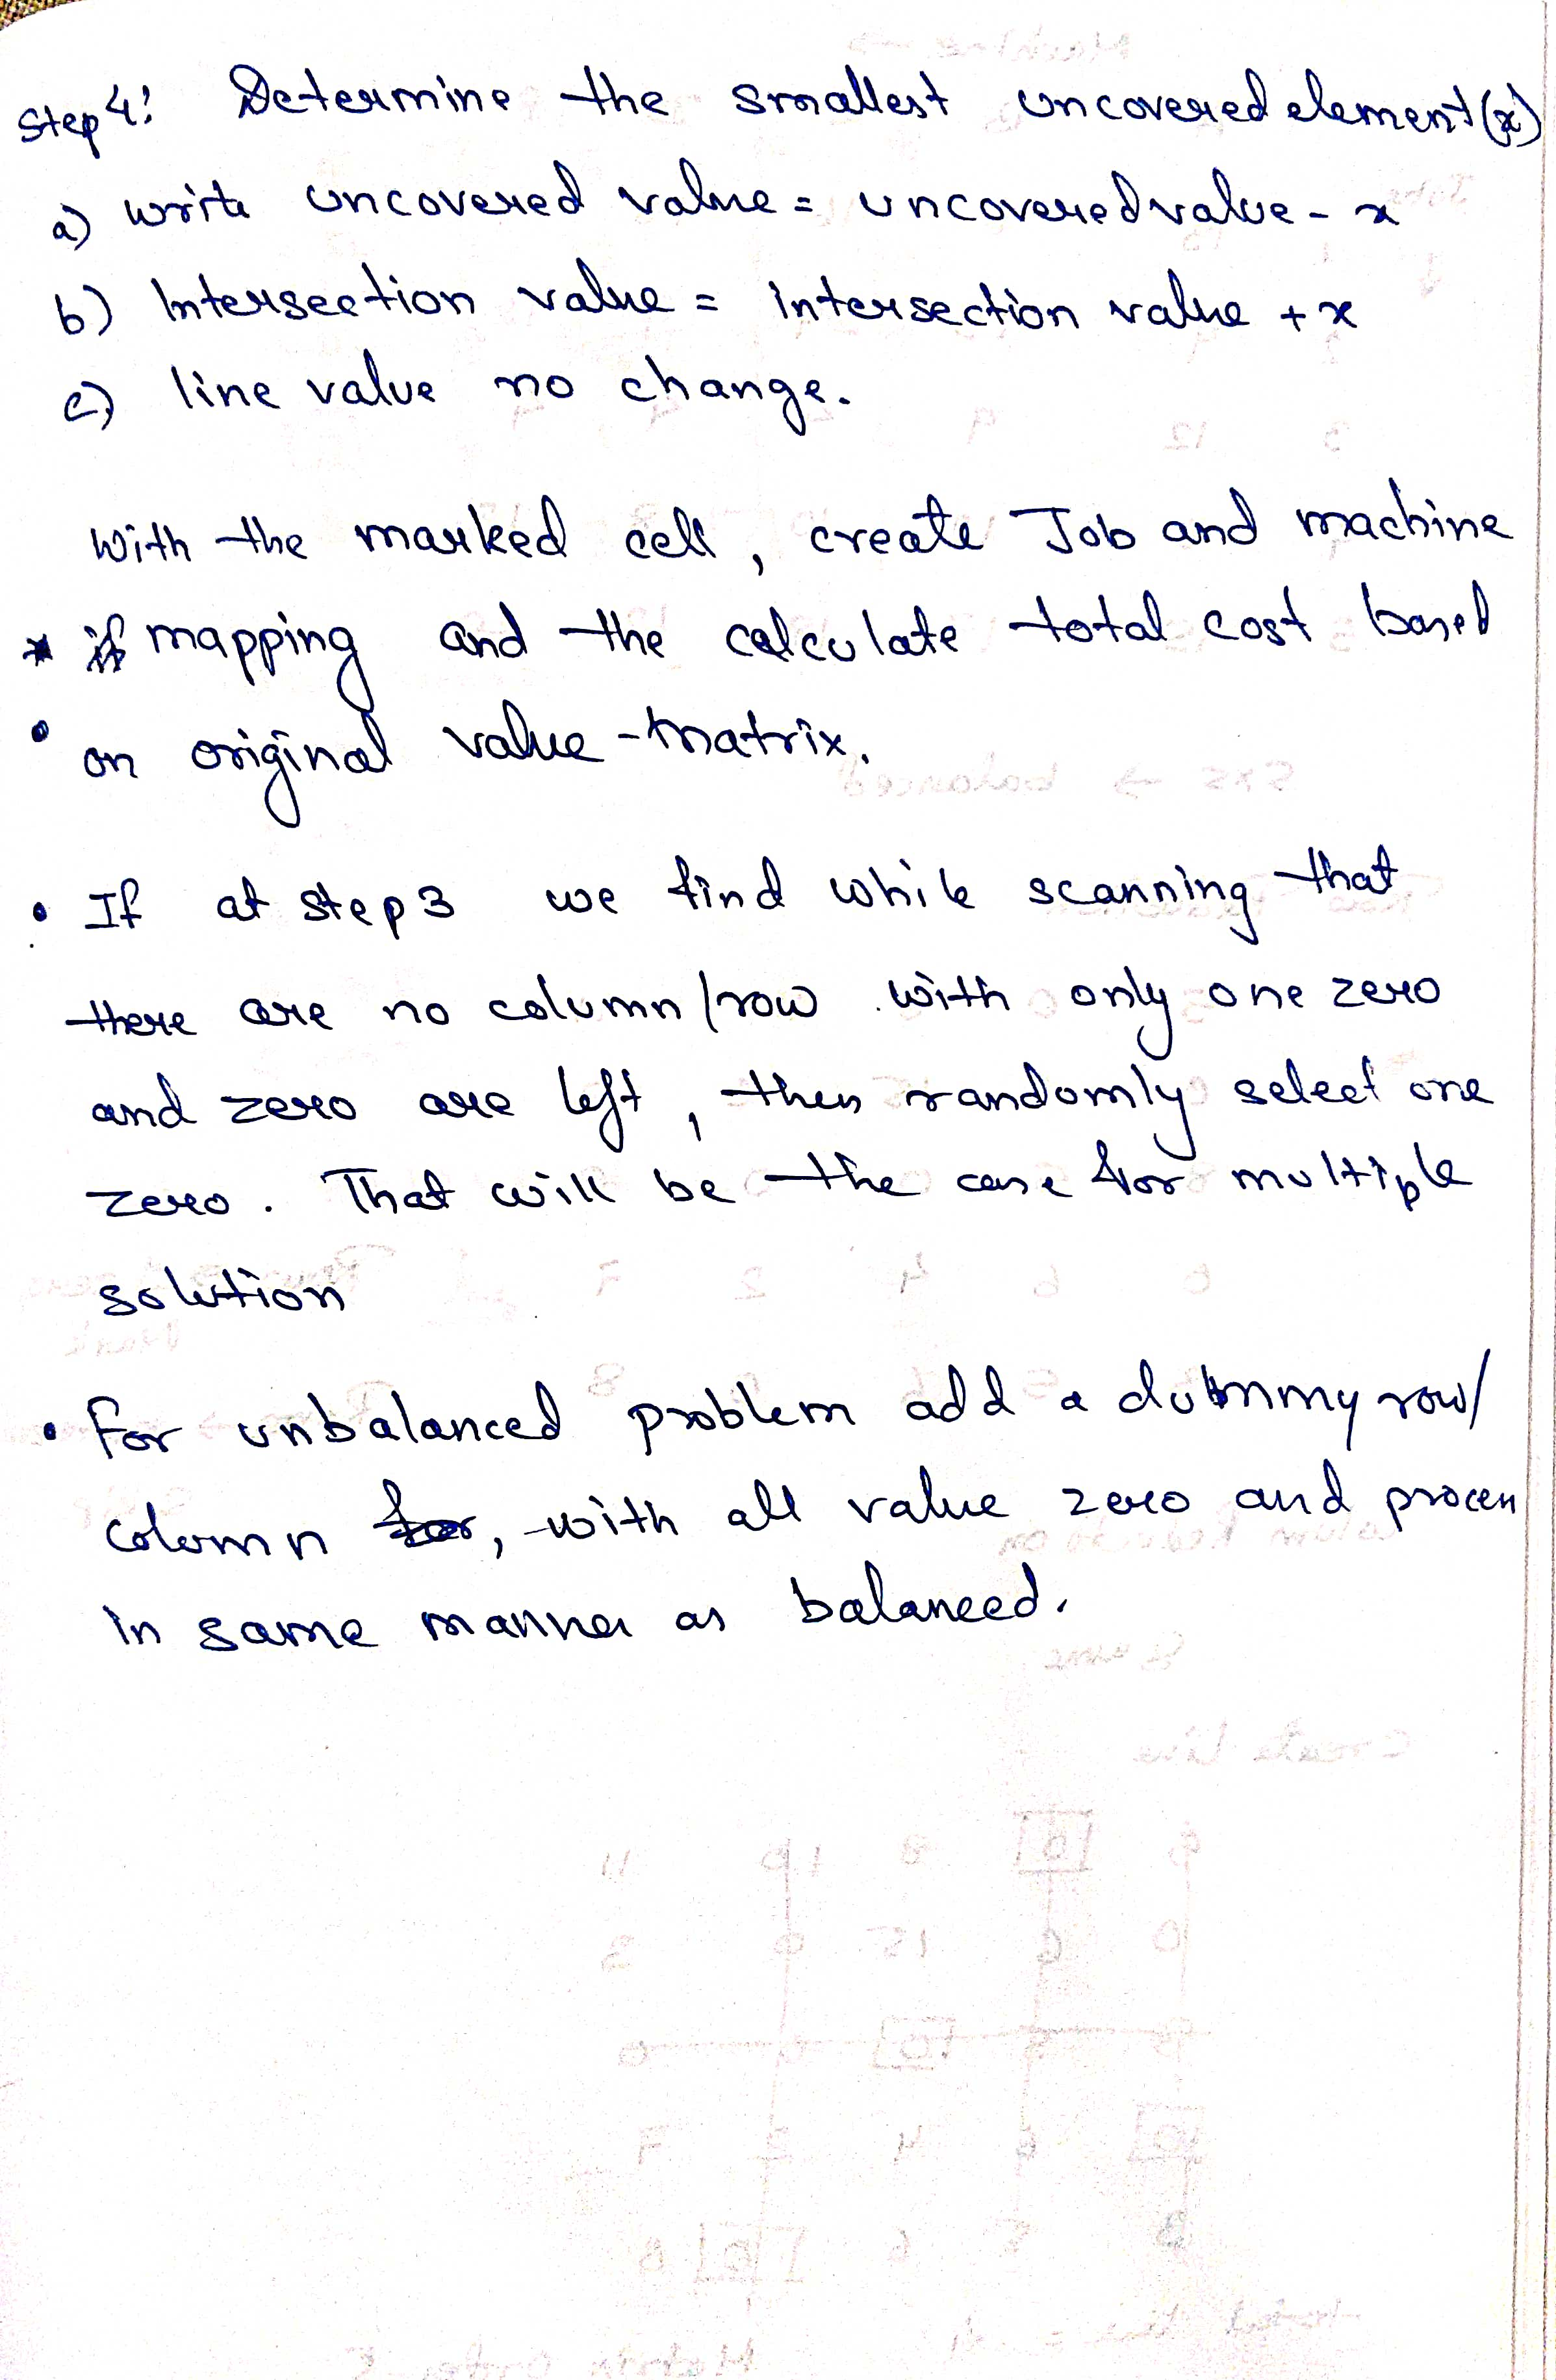 Step 4: Determine the smallest uncovered element (x)
a) write uncovered value = uncovered value - x
b) Intersection value = intersection value + x
c) line value no change.
With the marked cell, create Job and machine
* if mapping and the calculate total cost based
• on original value matrix.
• If at step 3 we find while scanning that
there are no column/row with only one zero
and zero are left, then randomly select one
zero. That will be the case for multiple
solution
• For unbalanced problem add a dummy row/
column for, with all value zero and process
in same manner as balanced.